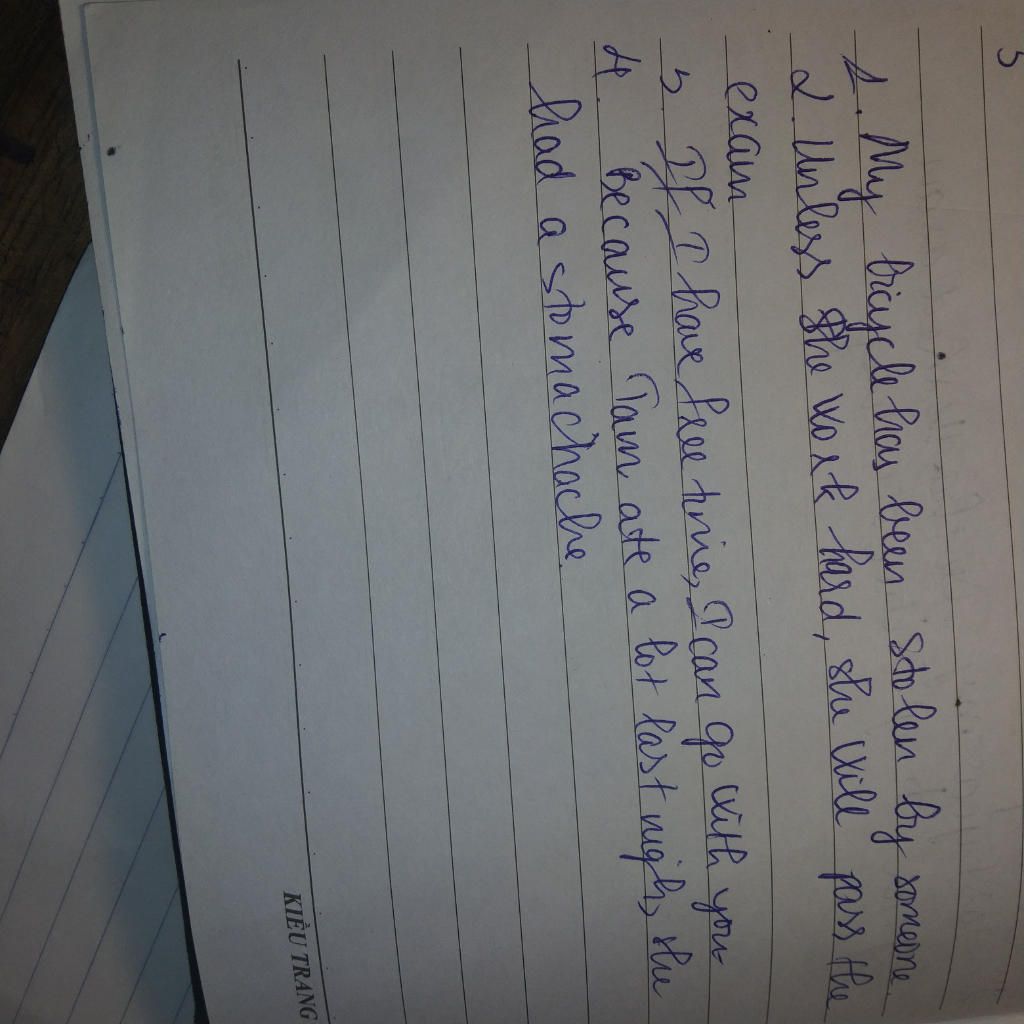 5
1. My bicycle has been stolen by someone.
2. Unless she work hard, she will pass the
exam
3. If I have free time, I can go with you
4. Because Tam ate a lot last nigh, she
had a stomachache.
KIỀU TRANG